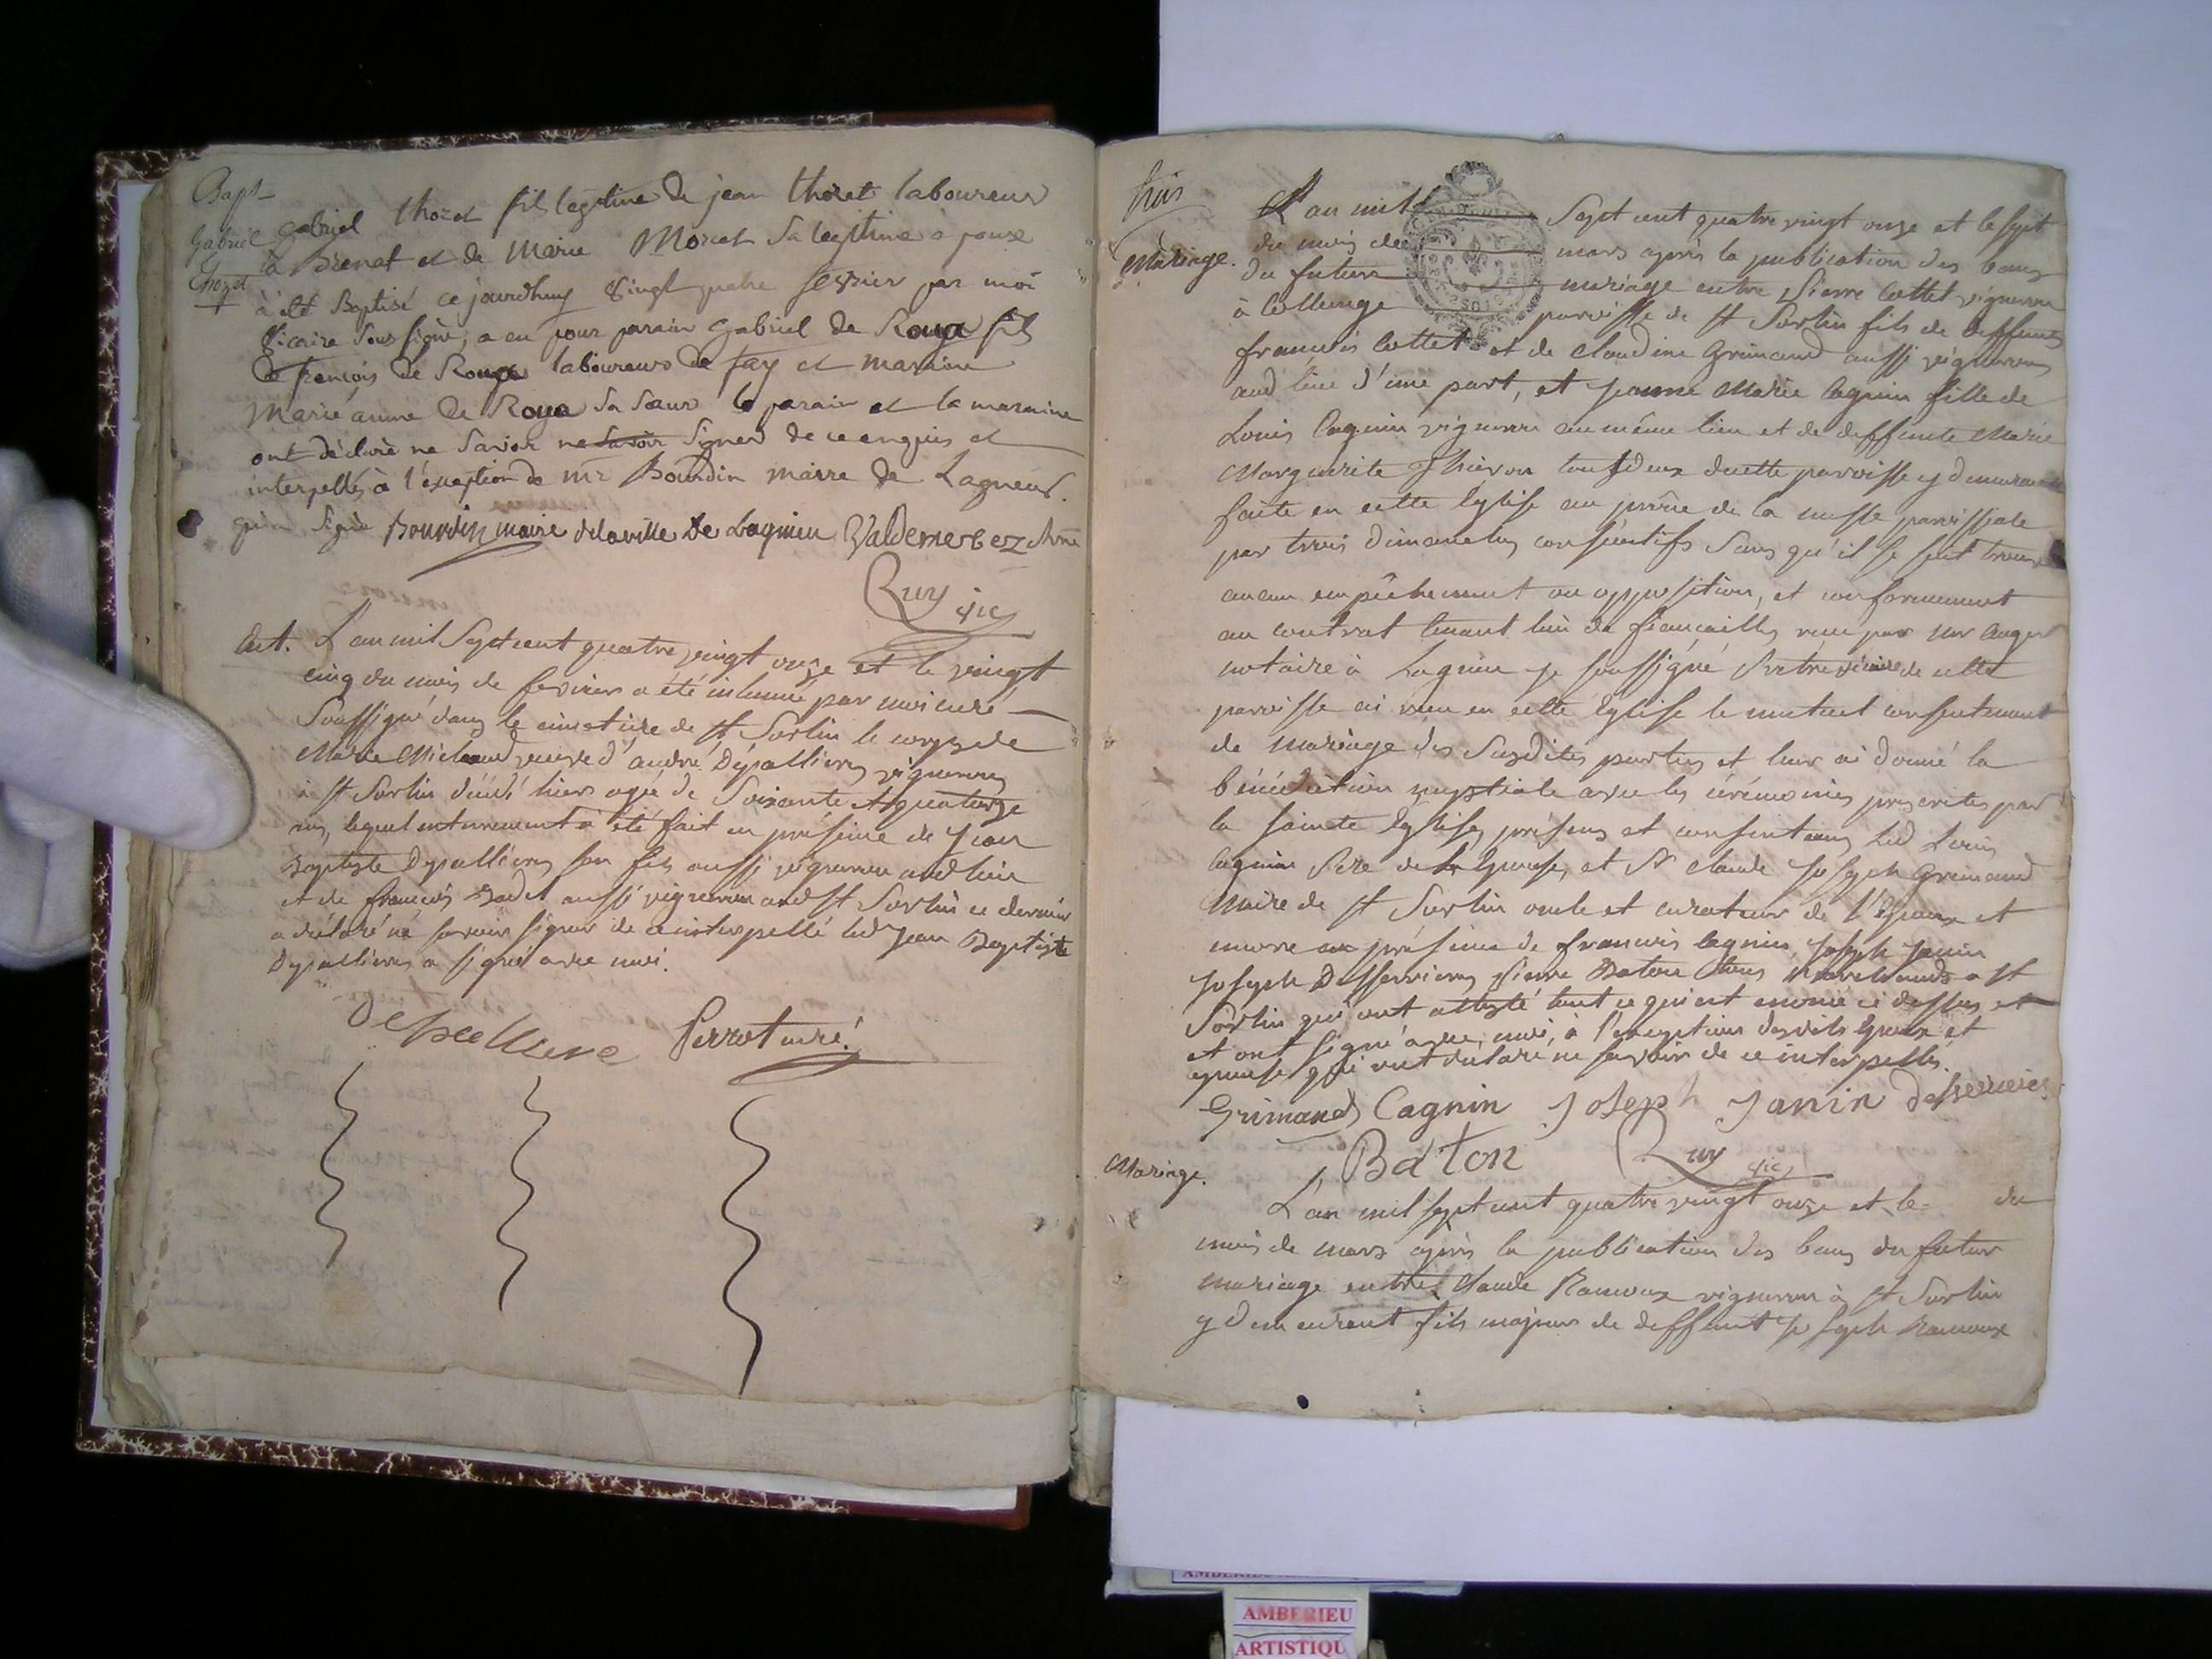 Bapt
Gabriel
Thozet
gabriel thozet fils legitime de jean thozet laboureur
à Brenat et de Marie Moret Sa legitime epouse
à été Baptisé ce jourdhuy vingt quatre fevrier par moi
vicaire Sous signé, a eu pour parain Gabriel de Roux fils
de francois de Roux laboureur de fay et maraine
Marie anne de Roux sa sœur le parain et la maraine
ont déclaré ne savoir ne savoir signer de ce enquis et
interpellés à l'exception de mr Bourdin maire de Lagneux.
qui a signé Bourdin maire de la ville de Lagnieu Valdemerbez
Ruy vic
Ent. L'an mil Sept cent quatre vingt onze et le vingt
cinq du mois de fevrier a été inhumé par moi curé
Soussigné dans le cimetière de St Sorlin le corps de
Marie Michaud veuve d'andré Dépallieres vigneron
à St Sorlin décédé hier agé de Soixante et quatorze
ans, lequel enterrement a été fait en présence de Jean
Baptiste Dépallieres son fils aussi vigneron aud lieu
et de francois Badet aussi vigneron aud St Sorlin ce dernier
a déclaré ne savoir signer de ce interpellé led Jean Baptiste
Dépallieres a signé avec moi.
Depalliere Perrot curé.
trois
Mariage.
L'an mil Sept cent quatre vingt onze et le sept
du mois de mars après la publication des bans
du futur mariage entre Pierre Cottet vigneron
à Collonge paroisse de St Sorlin fils de deffunts
francois Cottet et de Claudine Grimand aussi vigneron
aud lieu d'une part, et Jeanne Marie Cagnin fille de
Louis Cagnin vigneron au même lieu et de deffunte Marie
Marguerite Thievon tous deux de cette paroisse y demeurant
faite en cette Eglise au prône de la messe paroissiale
par trois dimanches consécutifs Sans qu'il se soit trouvé
aucun empêchement ou opposition, et conformement
au contrat tenant lieu de fiancailles reçu par mr auger
notaire à Lagnieu Je soussigné Prêtre vicaire de cette
paroisse ai reçu en cette Eglise le mutuel consentement
de mariage des Susdites parties et leur ai donné la
bénédiction nuptiale avec les cérémonies prescrites par
la Sainte Eglise, présens et consentans led Louis
Cagnin Père de la Epouse, et Sr Claude Joseph Grimand
Maire de St Sorlin oncle et curateur de l'Epoux et
encore en présence de francois Cagnin, Joseph Janin
Joseph Desserrieres Pierre Baton tous à St
Sorlin qui ont attesté tout ce qui est enoncé ci dessus et
et ont signé avec moi, à l'exception desdits Epoux et
epouse qui ont déclaré ne savoir de ce interpellés.
Grimand Cagnin Joseph Janin desserrieres
Baton Ruy vic
Mariage.
L'an mil sept cent quatre vingt onze et le= du
mois de mars après la publication des bans du futur
mariage entre Claude Ramoux vigneron à St Sorlin
y demeurant fils majeur de deffunt Joseph Ramoux
AMBERIEU
ARTISTIQU